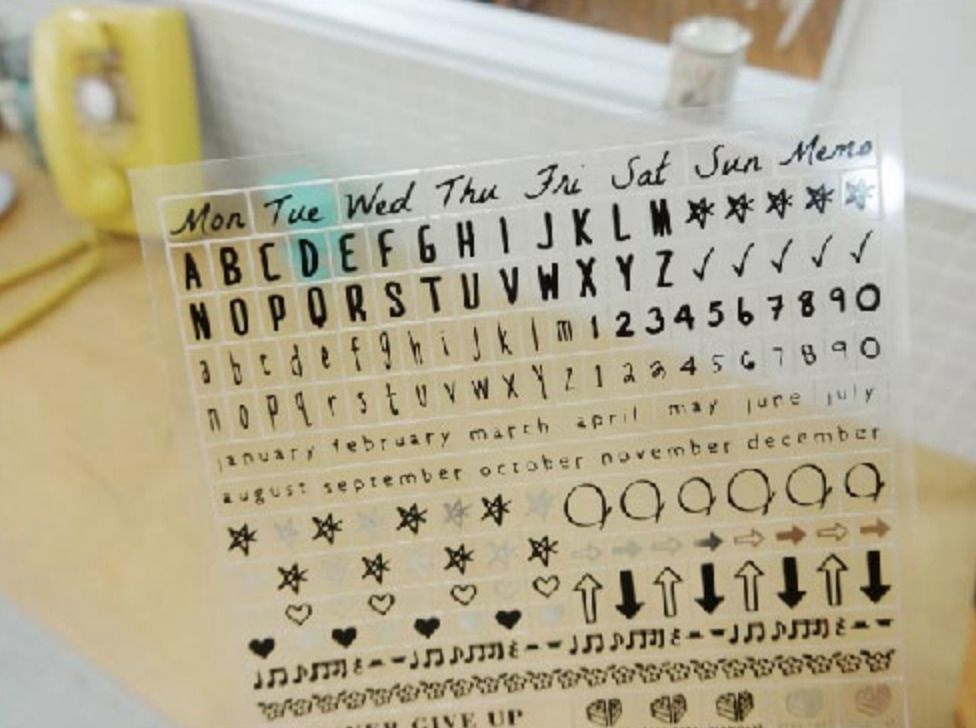 Mon Tue Wed Thu Fri Sat Sun Memo
A B C D E F G H I J K L M
N O P Q R S T U V W X Y Z ✓ ✓ ✓ ✓ ✓
a b c d e f g h i j k l m 1 2 3 4 5 6 7 8 9 0
n o p q r s t u v w x y z 1 2 3 4 5 6 7 8 9 0
january february march april may june july
august september october november december
GIVE UP